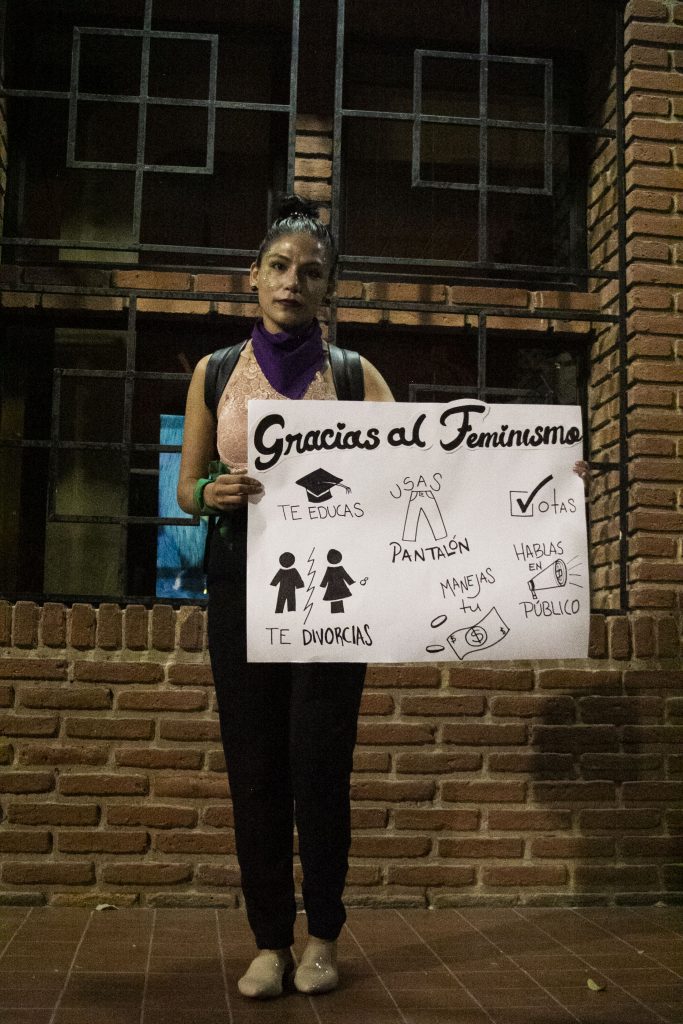 Gracias al Feminismo
TE EDUCAS
USAS
PANTALÓN
Votas
TE DIVORCIAS
MANEJAS
tu
HABLAS
EN
PÚBLICO